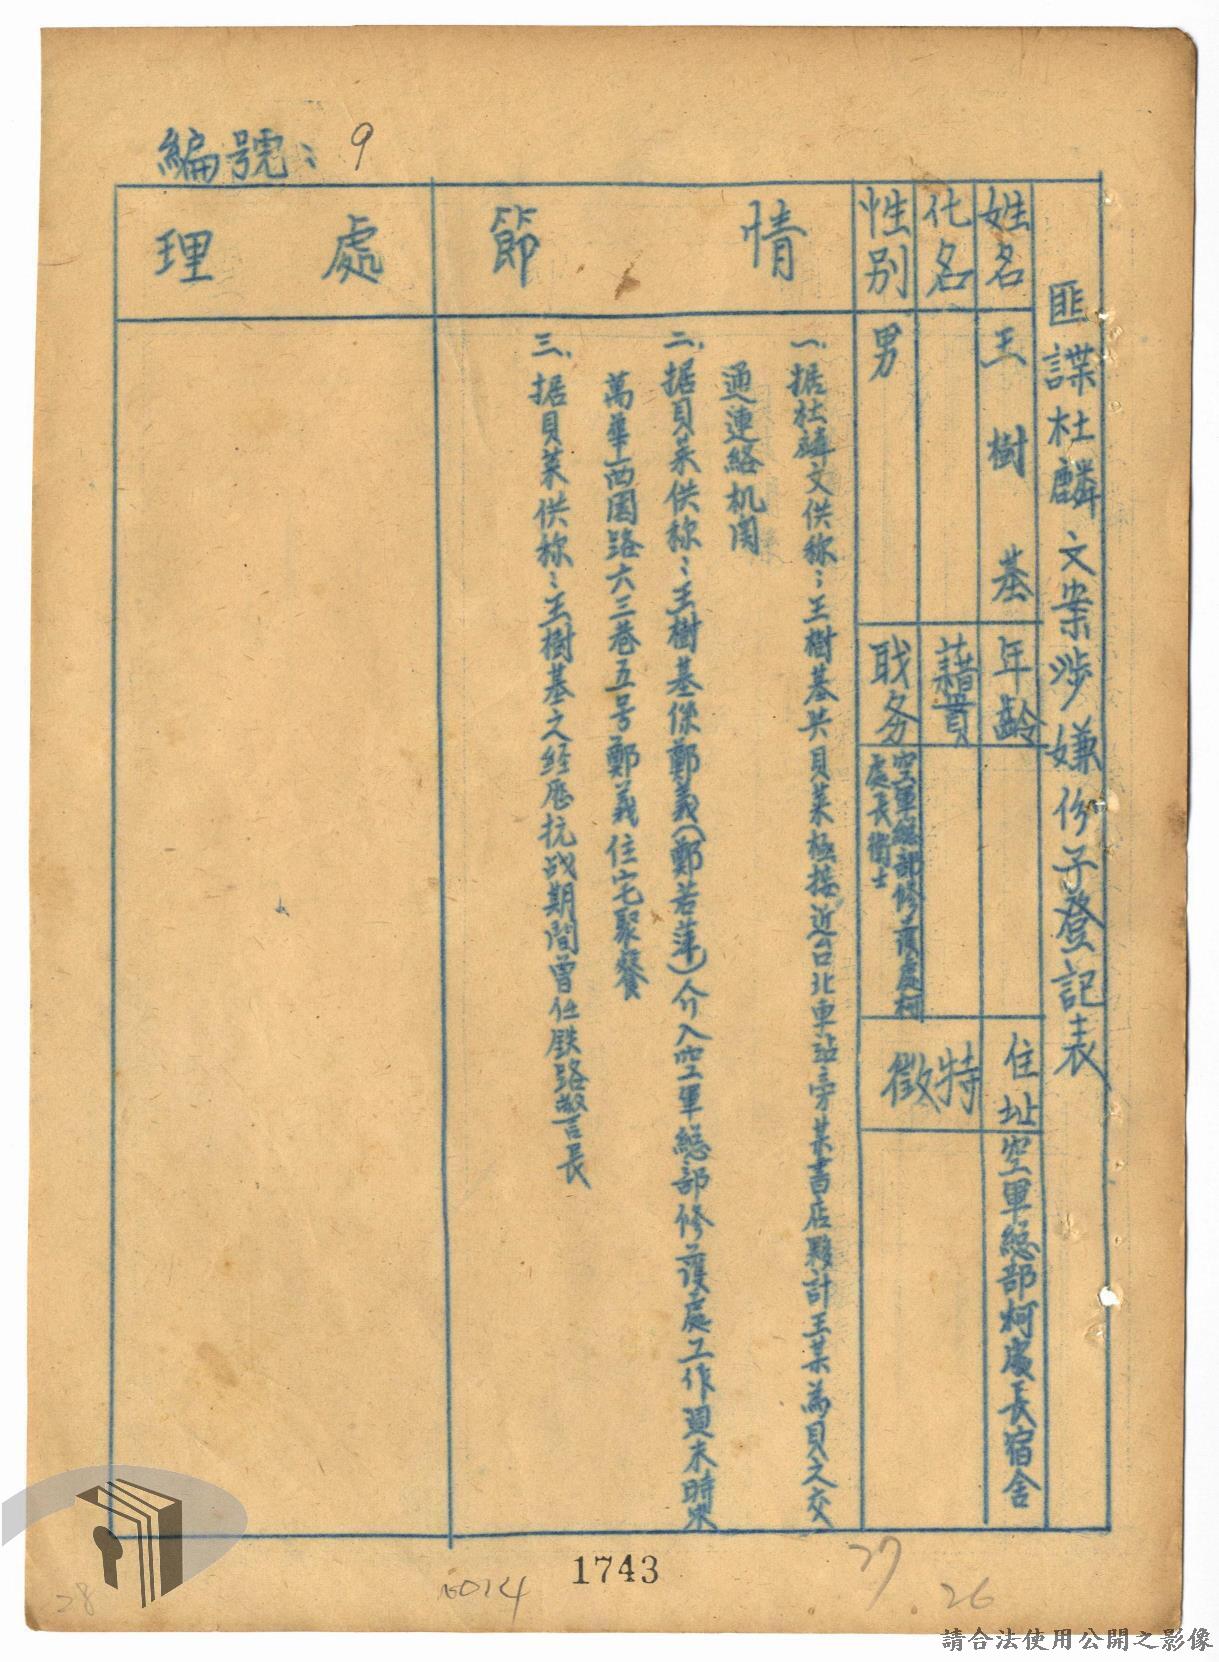 編號：9
匪諜杜麟文案涉嫌份子登記表
姓名
王樹基
年齡
住址
空軍總部柯處長宿舍
化名
籍貫
特徵
性別
男
职务
空軍總部修護處柯
處長衛士
情節
一、据杜麟文供称：王樹基共貝萊極接近台北車站旁某書店夥計王某為貝之交
通連絡机関
二、据貝萊供称：王樹基係鄭義（鄭若萍）介入空軍總部修護處工作週末時來
萬華西園路六三巷五号鄭義住宅聚餐
三、据貝萊供称：王樹基之経歷抗战期間曾任鉄路警長
處理
1743
27
26
28
請合法使用公開之影像